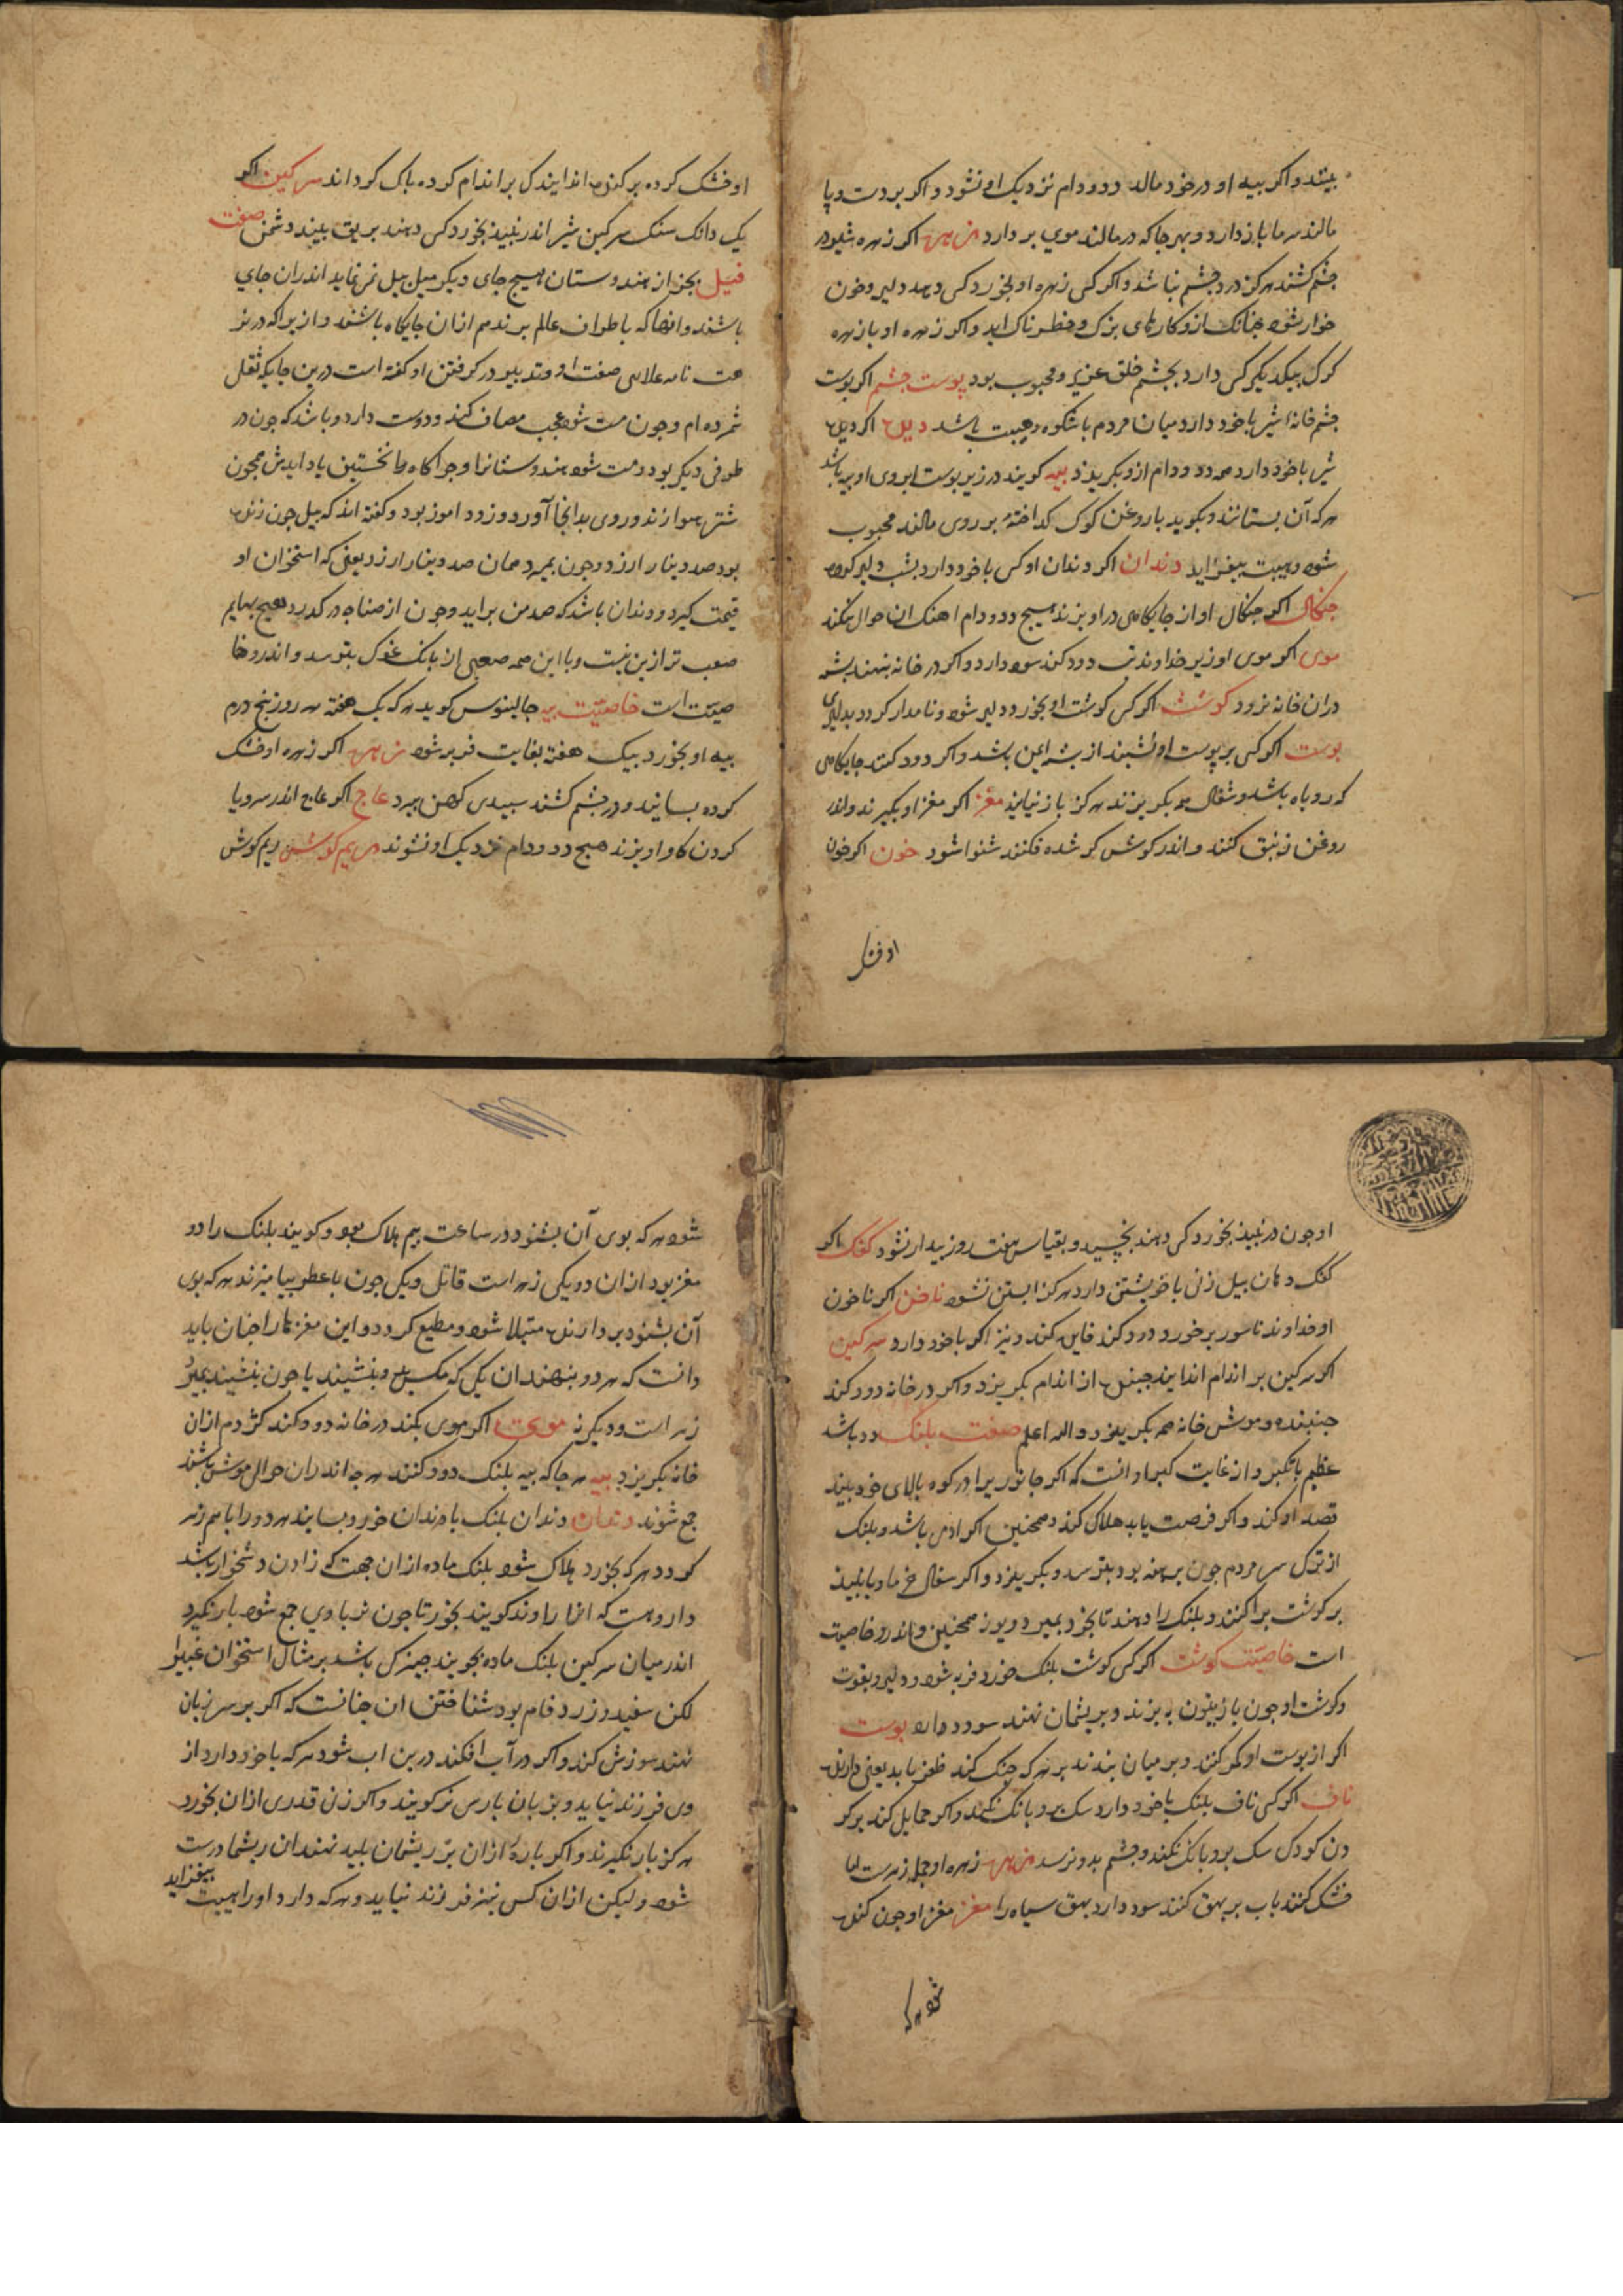 بیند و اکر بیه او در خود مالد دد و دام نزدیک او نشود و اکر بر دست و پا
مالند سرما باز دارد و بهر جا که در مالند موی بر دارد زهره اکر زهره شیر در
چشم کشند هرکز درد چشم نباشد و اکر کسی زهره او بخورد کسی دهد دلیر و خون
خوار شود چنانک ازو کارهای بزرک و خطرناک اید و اکر زهره او با زهره
کرک بیکدیکر کسی دارد بچشم خلق عزیز و محبوب بود پوست چشم اکر پوست
چشم خانه شیر با خود دارد میان مردم با شکوه و هیبت باشد دل اکر دل
شیر با خود دارد همه دد و دام ازو بکریزد بیه کویند در زیر پوست ابروی او بیه باشد
هر که آن بستانند و بکوید با روغن کوک کداخته بر روی مالند محبوب
شود و هیبت بیفزاید دندان اکر دندان او کسی با خود دارد بشب دلیر کردد
جنکال اکر جنکال او از جایکاهی در اویزند هیچ دد و دام اهنک ان حوال نکند
موی اکر موی او زیر خداوند تب دود کنند سود دارد و اکر در خانه بنهند پشه
دران خانه نرود کوشت اکر کسی کوشت او بخورد دلیر شود و نامدار کردد بدلیری
پوست اکر کسی بر پوست او نشیند از پشه ایمن باشد و اکر دود کنند جایکاهی
که روباه باشد و شغال همه بکریزند هرکز باز نیایند مغز اکر مغز او بکیرند و اندر
روغن زنبق کنند و اندر کوش کر شده فکنند شنوا شود خون اکر خون
او خشک
او خشک کرده بر کسی اندایند کل بر اندام کرده باک کرداند سرکین اکر
یک دانک سنک سرکین شیر اندر نبیذ بخورد کسی دهند بر یق بیند دشمن صفت
فیل بجز از هندوستان هیچ جای دیکر میل بیل نر نماید اندران جای
باشند و انها که باطراف عالم برند هم ازان جایکاه باشند و از برا که در نز
هت نامه علایی صفت او و تدبیر در کرفتن او کفته است درین جایکه ثقل
شمرده ام و چون مست شود عجب مصاف کند و دوست دارد و باشد که چون در
طوفی دیکر بود و مست شود هندوستانها و چراکاه نخستین یاد ایدش همچون
شتر سوارند و روی بدانجا آورد و زود اموز بود و کفته اند که بیل چون زنده
بود صد دینار ارزد و چون بمیرد همان صد دینار ارزد یعنی که استخوان او
قیمت کیرد و دندان باشد که صد من براید و چون از صنایه در کذرد هیچ بهایم
صعب تر ازین نیست و با این همه صعبی از بانک خوک بترسد و اندرو خا
صیت است خاصیت بیه جالینوس کوید هر که یک هفته هر روز پنج درم
بیه او بخورد بیک هفته بغایت فربه شود زهره اکر زهره او خشک
کرده بسایند و در چشم کشند سپیدی کهن ببرد عاج اکر عاج اندر سر و یا
کردن کاو اویزند هیچ دد و دام نزدیک او نشوند ریم کوش ریم کوش
او چون در نبیذ بخورد کسی دهند بخسپد و بقیاس هفت روز بیدار نشود کفک اکر
کفک دهان بیل زنی با خویشتن دارد هرکز ابستن نشود ناخن اکر ناخون
او خداوند ناسور بر خورد دود کند فایده کند و نیز اکر با خود دارد سرکین
اکر سرکین بر اندام اندایند جنبنده از اندام بکریزد و اکر در خانه دود کند
جنبنده و موش خانه همه بکریزد و الله اعلم صفت بلنک دد باشد
عظیم با تکبر و از غایت کبر او انست که اکر جانوریرا در کوه بالای خود بیند
قصد او کند و اکر فرصت یابد هلاک کند و همچنین اکر ادمی باشد و بلنک
از ترک سر مردم چون برهنه بود بترسد و بکریزد و اکر سفال خرما و یا نبیذ
بر کوشت پراکنند و بلنک را دهند تا بخورد بمیرد و یوز همچنین و اندرو خاصیت
است خاصیت کوشت اکر کسی کوشت بلنک خورد فربه شود و دلیر و بقوت
و کوشت او چون با زیتون بپزند و بر یشمان نهند سود دارد پوست
اکر از پوست او کمر کنند و بر میان بندند بر هر که جنک کند ظفر یابد یعنی دارنده
ناف اکر کسی ناف بلنک با خود دارد سک برو بانک نکند و اکر حمایل کند بر کر
دن کودک سک برو بانک نکند و چشم بد و نرسد زهره زهره او جمله زهرست اما
خشک کنند باب بر بهق کنند سود دارد بهق سیاه را مغز مغز او چون کنده
شود هر که
شود هر که بوی آن بشنود در ساعت بیم هلاک بود و کویند بلنک را دو
مغز بود ازان دو یکی زهر است قاتل و یکی چون با عطر بیامیزند هر که بوی
آن بشنود بر دارنده مبتلا شود و مطیع کردد و این مغزها را چنان باید
دانست که هر دو بنهند ان یکی که مکس برو بنشیند یا چون بنشیند بمیرد
زهر است و دیکر نه موی اکر موی بکند در خانه دود کند کژدم ازان
خانه بکریزد بیه هر جا که بیه بلنک دود کنند هر چه اندران حوال موش باشند
جمع شوند دندان دندان بلنک با دندان خورد بسایند هر دو را با هم زهر
کردد هر که بخورد هلاک شود بلنک ماده ازان جهت که زادن دشخوار باشد
دارو هست که انرا راوند کویند بخورد تا چون نر با وی جمع شود بار نکیرد
اندر میان سرکین بلنک ماده بجویند چیزکی باشد بر مثال استخوان
لکن سفید و زرد فام بود شناختن ان چنانست که اکر بر سر زبان
نهند سوزش کند و اکر در آب افکند درین اب شود هر که با خود دارد از
وی فرزند نیاید و بزبان بارسی نر کویند و اکر زن قدری ازان بخورد
هرکز بار نکیرند و اکر باره ازان بر ریشهای بلید نهند ان ریشها درست
شود و لیکن ازان کس نیز فرزند نیاید و هر که دارد او را هیبت بیفزاید